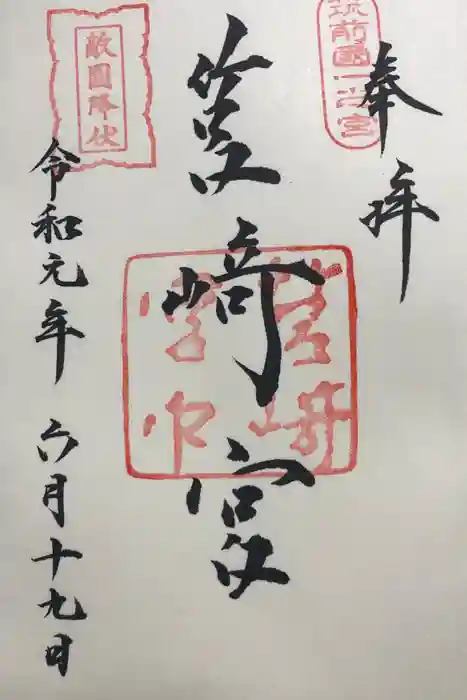 奉拝
筑前國一之宮
筥崎宮
敵國降伏
令和元年 六月十九日